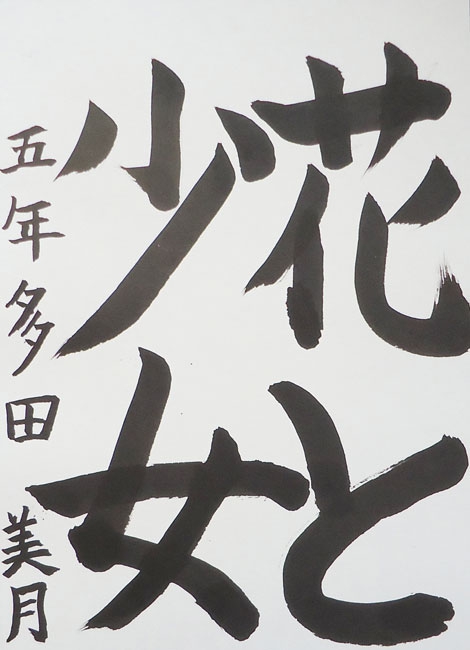 花と
少女
五年多田美月